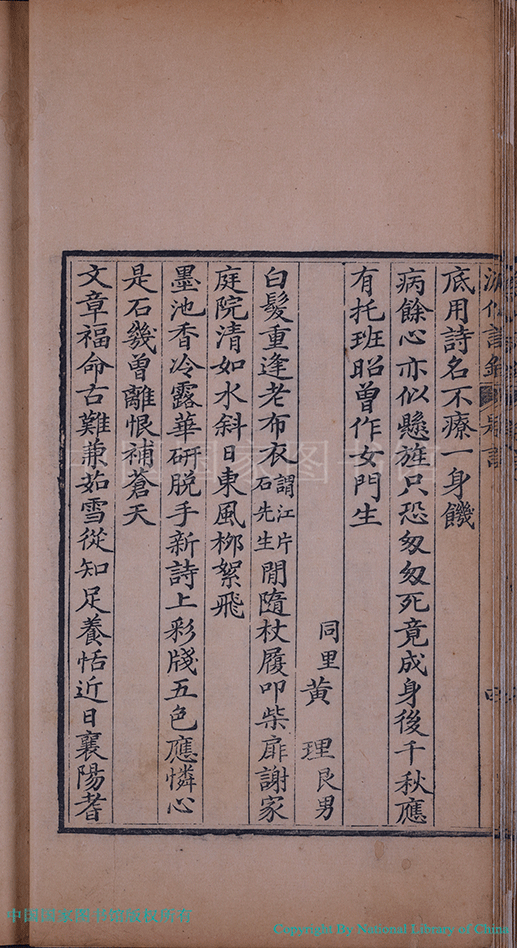 底用詩名不療一身饑
病餘心亦似懸旌只恐匆匆死竟成身後千秋應
有托班昭曾作女門生
同里黃理艮男
白髮重逢老布衣謂江片石先生閒隨杖履叩柴扉謝家
庭院清如水斜日東風柳絮飛
墨池香冷露華研脫手新詩上彩牋五色應憐心
是石幾曾離恨補蒼天
文章福命古難兼茹雪從知足養恬近日襄陽耆
中国国家图书馆版权所有
Copyright By National Library of China